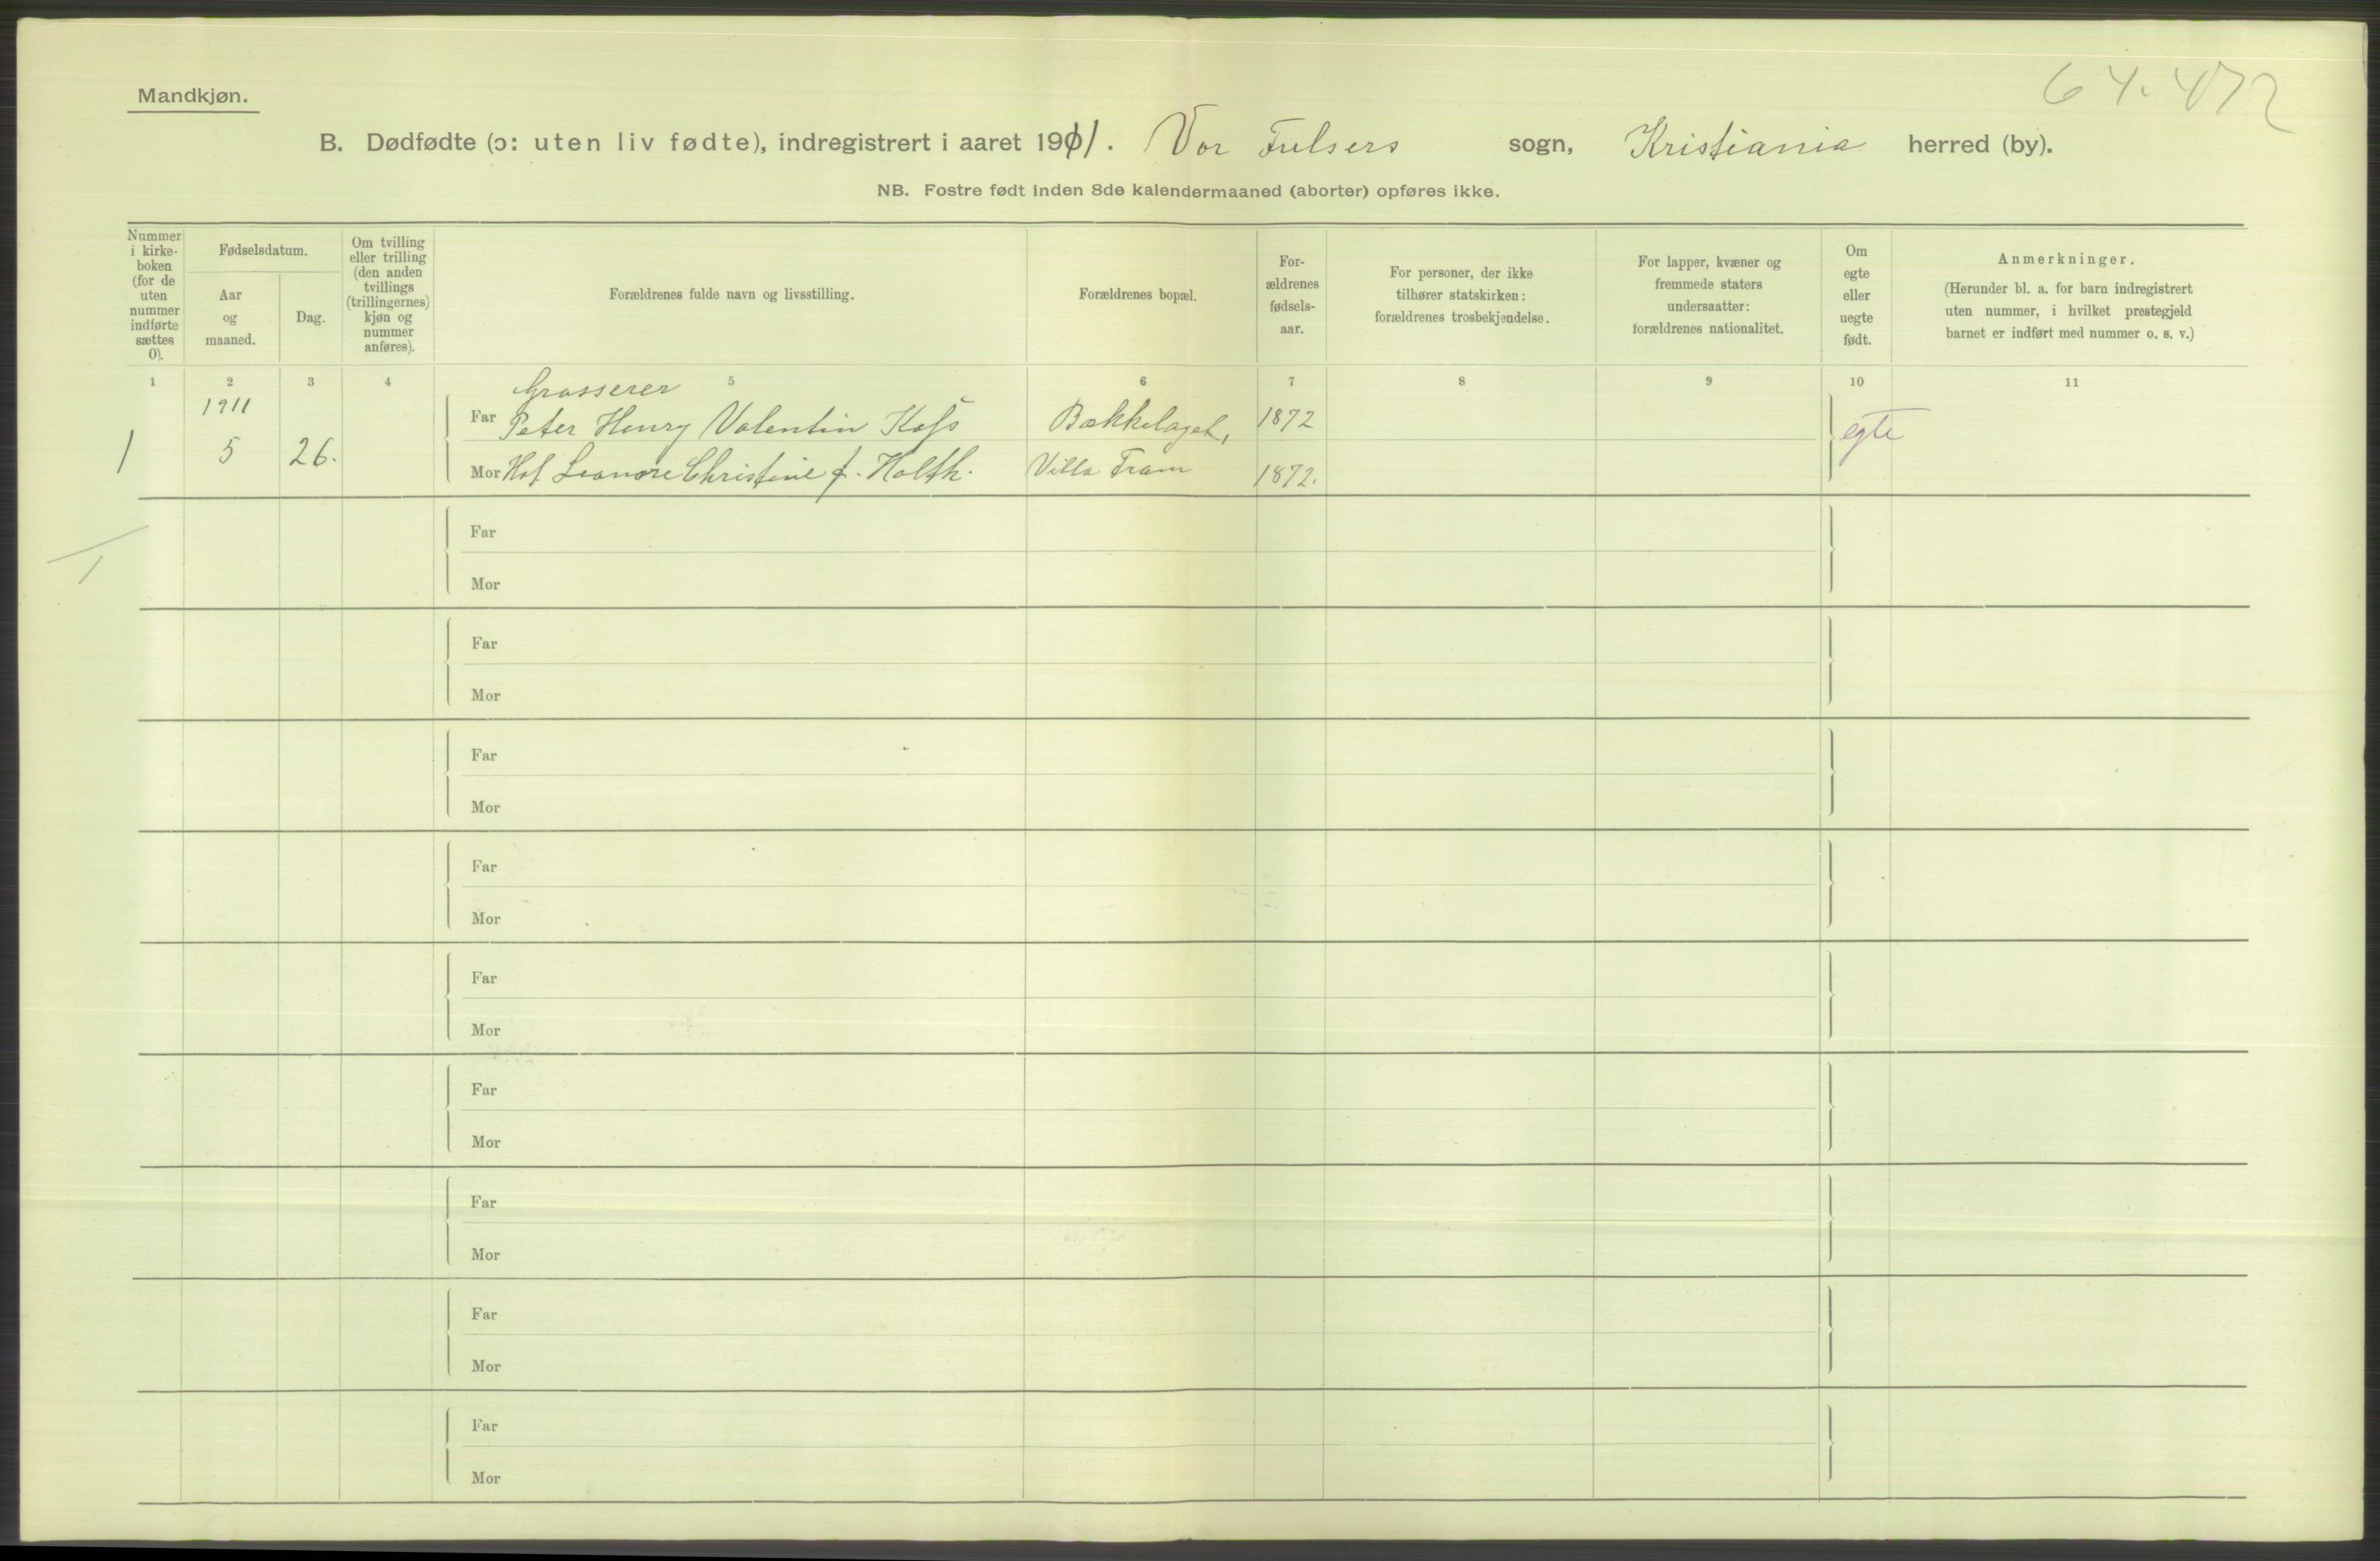 64.472
Mandkjøn.
B. Dødfødte (ɔ: uten liv fødte), indregistrert i aaret 1911. Vor Frelsers sogn, Kristiania herred (by).
NB. Fostre født inden 8de kalendermaaned (aborter) opføres ikke.
Nummer
i kirke-
boken
(for de
uten
nummer
indførte
sættes
0).
Fødselsdatum.
Aar
og
maaned.
Dag.
Om tvilling
eller trilling
(den anden
tvillings
(trillingernes)
kjøn og
nummer
anføres).
Forældrenes fulde navn og livsstilling.
Forældrenes bopæl.
For-
ældrenes
fødsels-
aar.
For personer, der ikke
tilhører statskirken:
forældrenes trosbekjendelse.
For lapper, kvæner og
fremmede staters
undersaatter:
forældrenes nationalitet.
Om
egte
eller
uegte
født.
Anmerkninger.
(Herunder bl. a. for barn indregistrert
uten nummer, i hvilket prestegjeld
barnet er indført med nummer o. s. v.)
1 2 3 4 5 6 7 8 9 10 11
Grosserer
1911 Far Peter Henry Valentin Bækkelaget, 1872
1 5 26. Mor Leonore Christine f. Holth. Villa Fram 1872. egte
Far
Mor
Far
Mor
Far
Mor
Far
Mor
Far
Mor
Far
Mor
Far
Mor
Far
Mor
Far
Mor